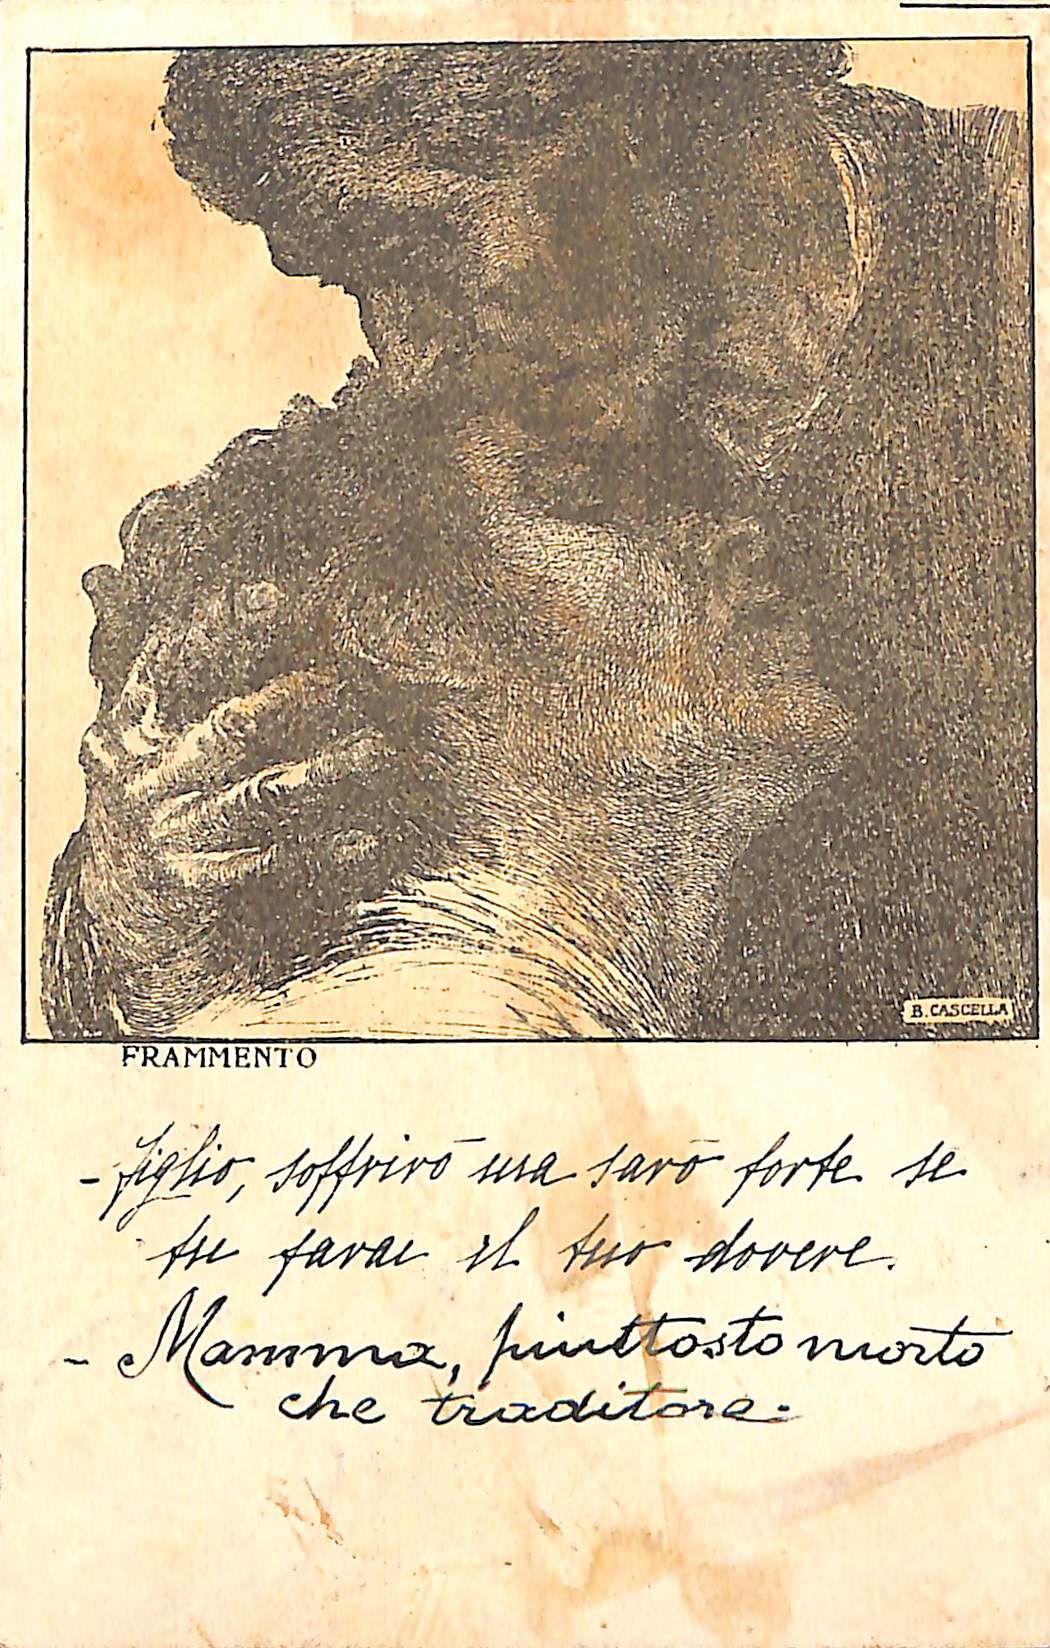 B. CASCELLA
FRAMMENTO
- figlio, soffrirò ma sarò forte se
tu farai il tuo dovere.
- Mamma, piuttosto morto
che traditore.